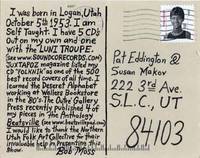 I was born in Logan, Utah
October 5th 1953. I am
Self Taught. I have 5 CDs
out on my own and one
with the LUNI TROUPE.
(see www.SOUNDCORECORDS.COM)
JUXTAPOZ magazine listed my
CD "FOLKNIK" as one of the 500
best record covers of all time. I
learned the Deseret Alphabet
working at Wellers Bookstore
in the 80's. The Outre Gallery
Press recently published 4 of
my pieces in the Anthology
Beatsville (See www.
I would like to thank the Northern
Utah Folk Art Collective for their
invaluable help in Presenting this
Show.
Bob Moss
Pat Eddington @
Susan Makov
222 3rd Ave.
S.L.C., UT
84103